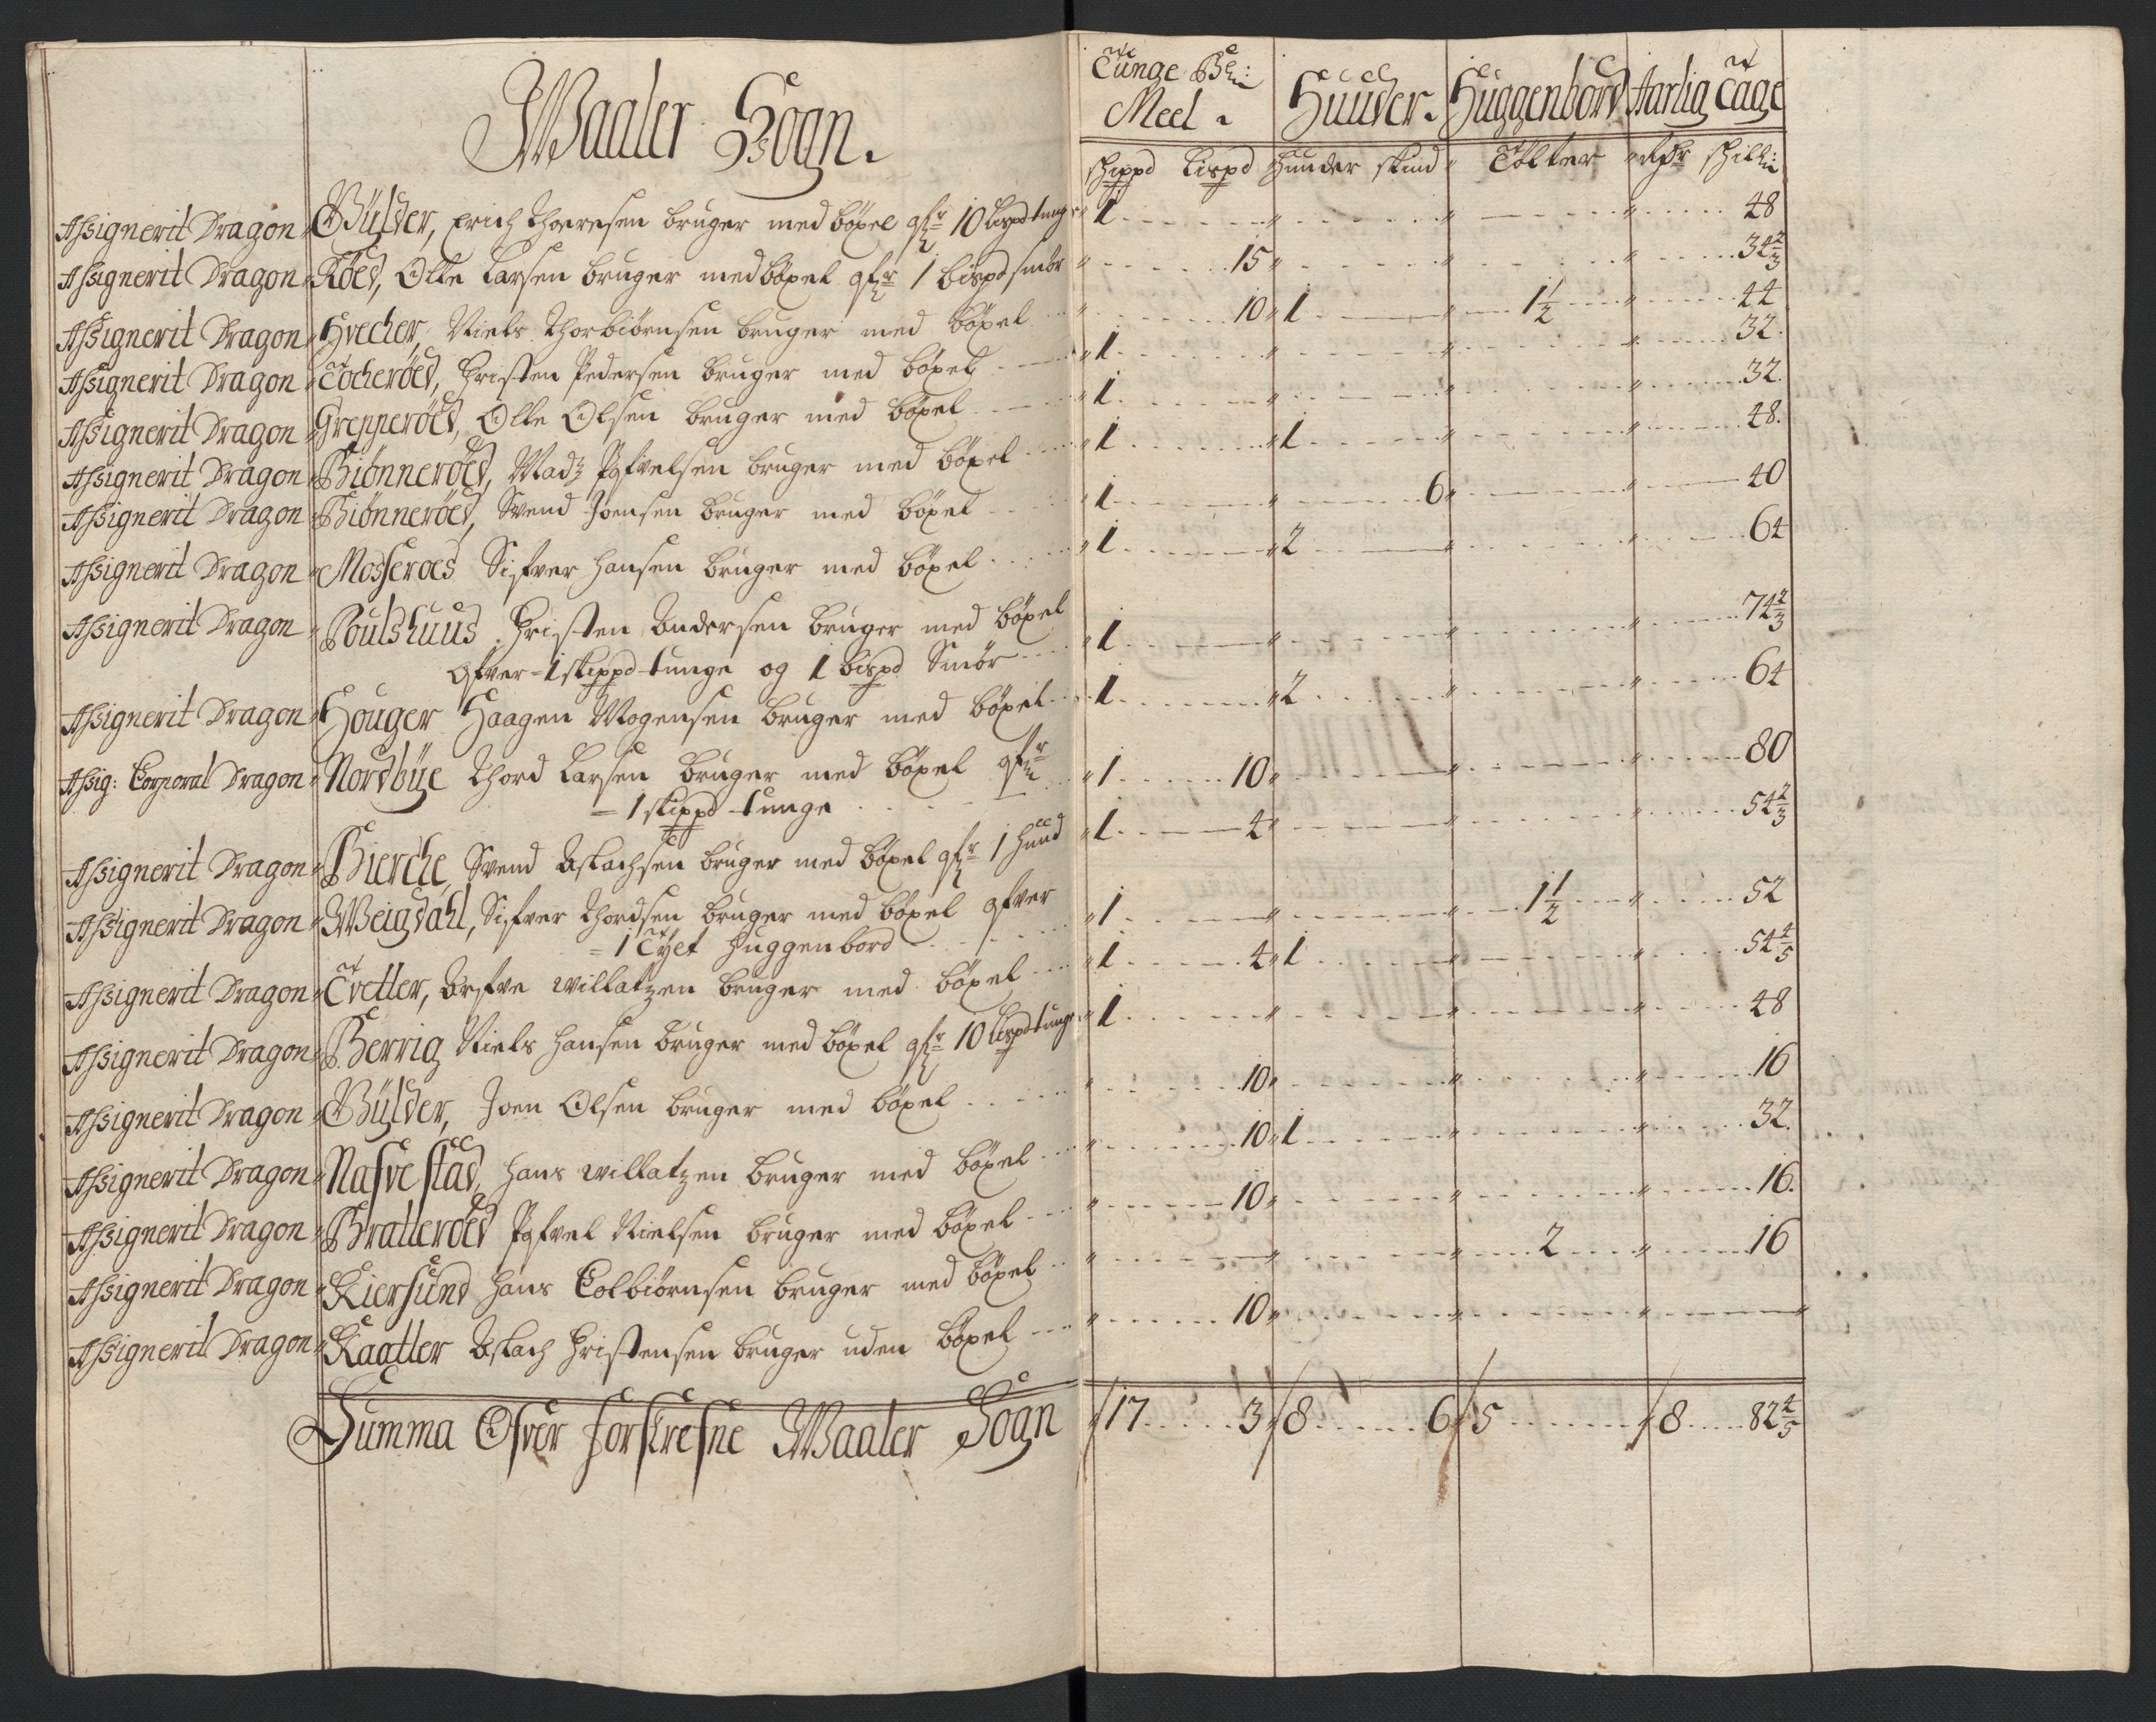 Waaler Sogn.
Tunge
Meel. Huuder. Huggenbord Aarlig Tage
schippd Lispd Huuder skind Tolter schill:
Assignerit Dragon Bülder, Erich bruger med böxel ofr 10 Lispd tunge 1 48
Assignerit Dragon Röed, Olle Larsen bruger med böxel ofr 1 bispd smör 15 34 2/3
Assignerit Dragon Hvecher, Niels Thorbiörnsen bruger med böxel 10 1 1 1/2 44
Assignerit Dragon Tocheröed, Christen Pedersen bruger med böxel 1 32.
Assignerit Dragon Grepperöed, Olle Olsen bruger med böxel 1 32.
Assignerit Dragon Biönneröed, Madz bruger med böxel 1 1 48.
Assignerit Dragon Biönneröed, Svend Joensen bruger med böxel 1 6 40
Assignerit Dragon Mosseroed Sifver Hansen bruger med böxel 1 2 64
Assignerit Dragon Poulshuus. Christen Andersen bruger med böxel
ofver 1 skippd tunge og 1 bispd Smör 1 74 2/3
Assignerit Dragon Houger Haagen Mogensen bruger med böxel 1 2 64
Assig: Corporal Dragon Nordbÿe Thord Larsen bruger med böxel ofr
= 1 skippd tunge 1 10 80
Assignerit Dragon Bierche, Svend Aslachsen bruger med böxel ofr 1 huud 1 4 54 2/3
Assignerit Dragon Weigdahl, Sifver Thordsen bruger med böxel ofver
= 1 Tÿet Huggenbord 1 1 1/2 52
Assignerit Dragon Tvetter, Arfve Willatzen bruger med böxel 1 4 1 54 4/5
Assignerit Dragon Berrig Niels Hansen bruger med böxel ofr 10 Lispd tunge 1 48
Assignerit Dragon Bülder, Joen Olsen bruger med böxel 10 16
Assignerit Dragon Nafvestad, Hans Willatzen bruger med böxel 10 1 32.
Assignerit Dragon Bratteröed Nielsen bruger med böxel 10 16.
Assignerit Dragon Kiersund Hans Colbiörnsen bruger med böxel 2 16
Assignerit Dragon Kaatter Aslach Christensen bruger uden böxel 10
Summa Ofver forskrefne Waaler Sogn 17 3 8 6 5 8 82 4/5